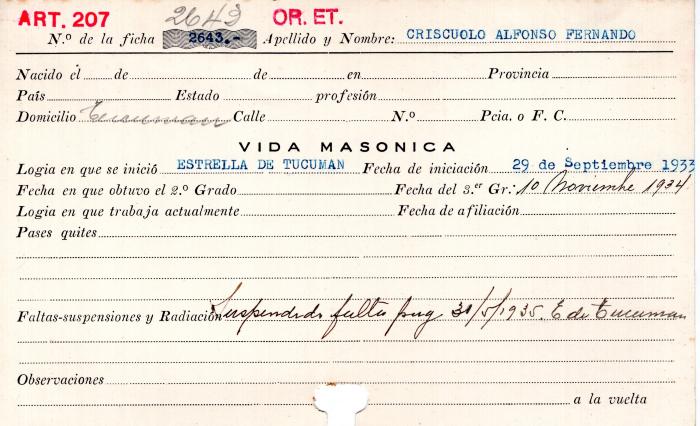 ART. 207 2643 OR. ET.
N.º de la ficha 2643.- Apellido y Nombre: CRISCUOLO ALFONSO FERNANDO
Nacido el de de en Provincia
País Estado profesión
Domicilio Tucuman Calle N.º Pcia. o F. C.
VIDA MASONICA
Logia en que se inició ESTRELLA DE TUCUMAN Fecha de iniciación 29 de Septiembre 1933
Fecha en que obtuvo el 2.º Grado Fecha del 3.er Gr.: 10 Noviembre 1934
Logia en que trabaja actualmente Fecha de afiliación
Pases quites
Faltas-suspensiones y Radiación Suspendido falta pag 30/5/1935. E de Tucuman
Observaciones
a la vuelta